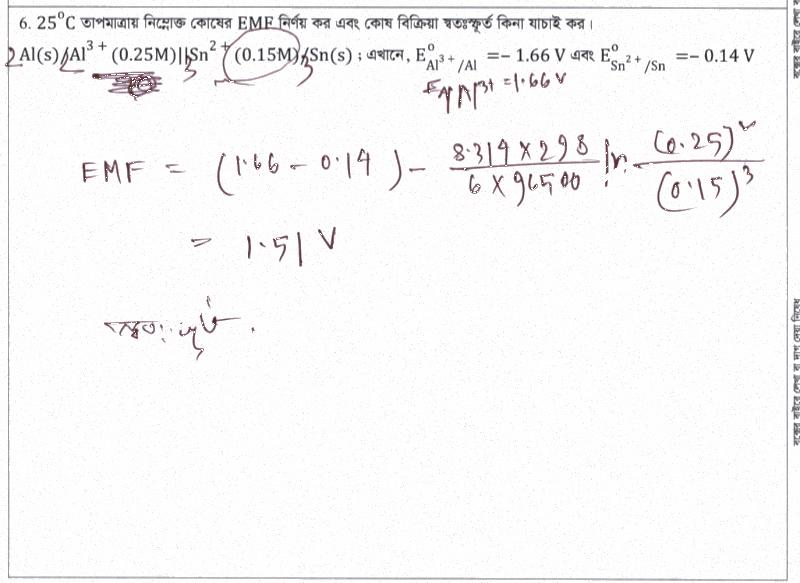 6. 25°C তাপমাত্রায় নিম্নোক্ত কোষের EMF নির্ণয় কর এবং কোষ বিক্রিয়া স্বতঃস্ফূর্ত কিনা যাচাই কর।
2Al(s)/2Al³⁺ (0.25M)||3Sn²⁺ (0.15M)/3Sn(s) ; এখানে, E°Al³⁺/Al = − 1.66 V এবং E°Sn²⁺/Sn = − 0.14 V
E Al/Al³⁺ = 1.66 V
EMF = (1.66 − 0.14) − (8.314 × 298)/(6 × 96500) ln (0.25)²/(0.15)³
= 1.51 V
স্বতঃস্ফূর্ত.